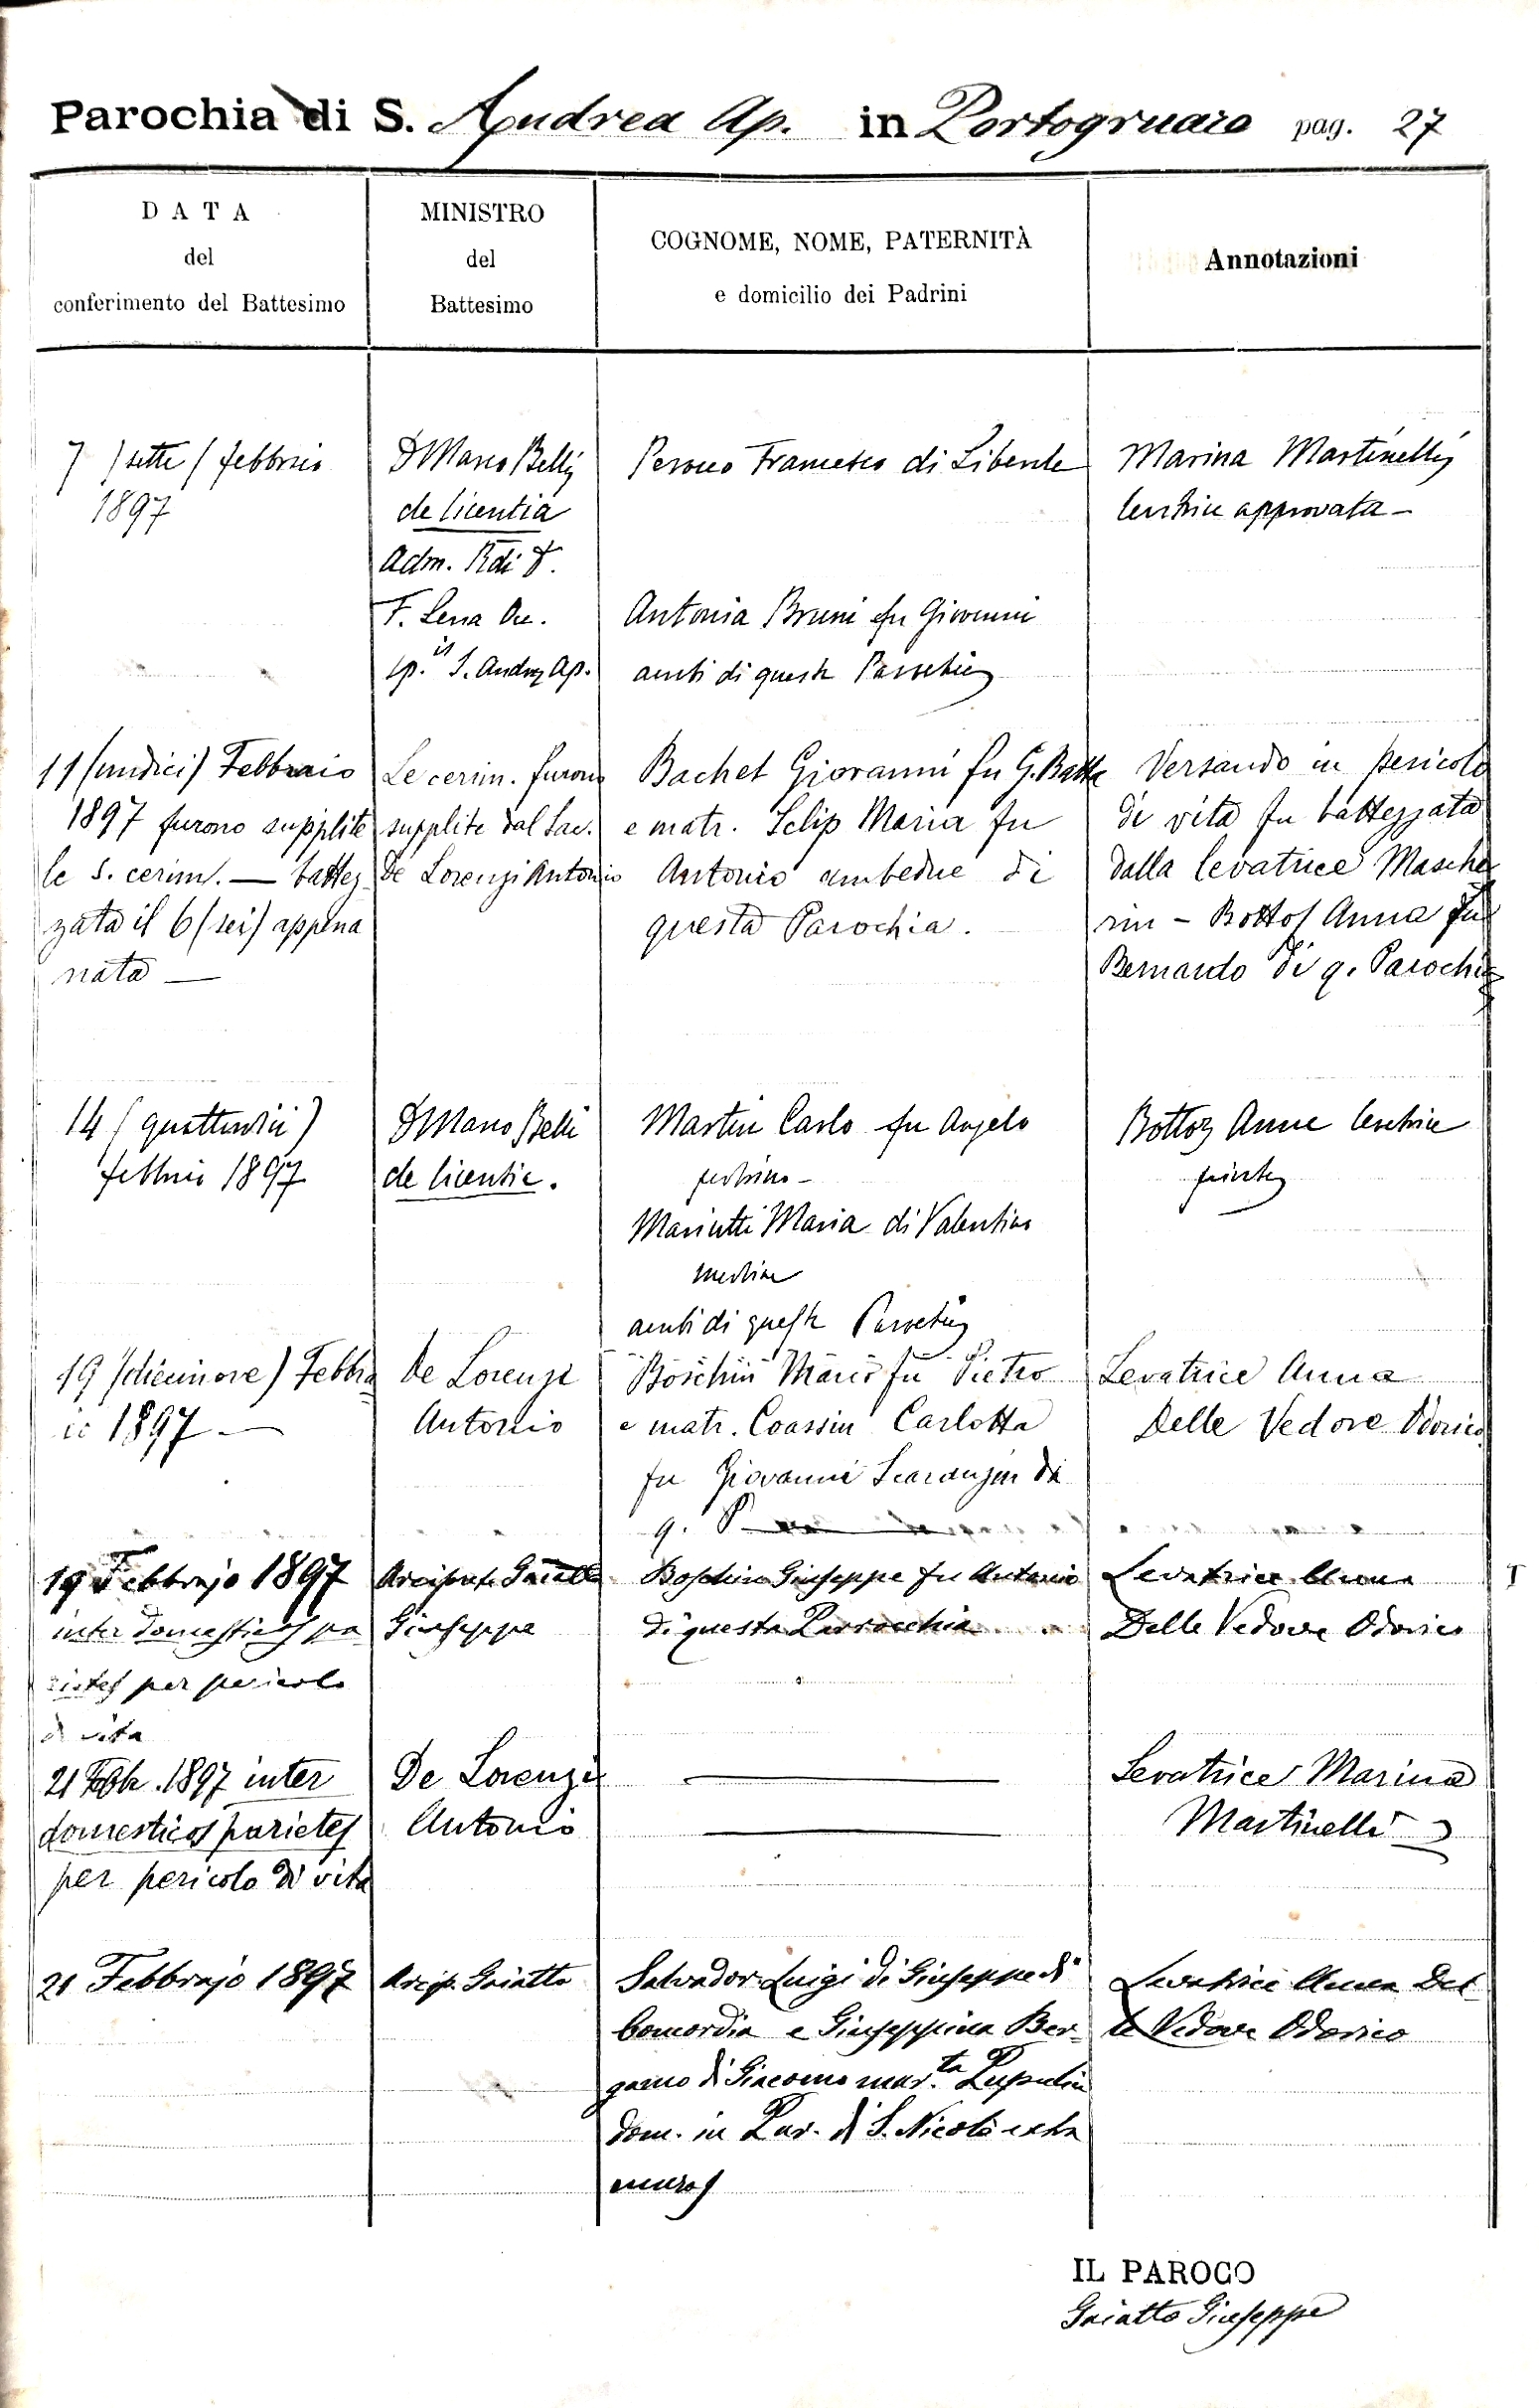 Parochia di S. Andrea Ap. in Portogruaro pag. 27
DATA
del
conferimento del Battesimo
MINISTRO
del
Battesimo
COGNOME, NOME, PATERNITÀ
e domicilio dei Padrini
Annotazioni
7 (sette) febbraio
1897
D Marco Belli
de licentia
Adm. Rdi D.
F. Lena
S. Andreæ Ap.
Francesco di Liberale
Antonia Bruni fu Giovanni
ambi di questa Parrochia
Marina Martinelli
levatrice approvata -
11 (undici) Febbraio
1897 furono supplite
le s. cerim. — battez
zata il 6 (sei) appena
nata —
Le cerim. furono
supplite dal Sac.
De Lorenzi Antonio
Bachet Giovanni fu G. Batta
e matr. Sclip Maria fu
Antonio ambedue di
questa Parochia.
Versando in pericolo
di vita fu battezzata
dalla levatrice Masche
rin - Bottos Anna fu
Bernardo di q. Parochia
14 (quattordici)
febbraio 1897
D Marco Belli
de licentia.
Martin Carlo fu Angelo
padrino -
Mariutti Maria di Valentino
madrina
ambi di questa Parrochia
Bottos Anna levatrice
19 (diecinove) Febbra
io 1897 —
De Lorenzi
Antonio
Boschin Mario fu Pietro
e matr. Coassin Carlotta
fu Giovanni Scaranzin di
q. P
Levatrice Anna
Delle Vedove Odorico
19 Febbrajo 1897
inter domesticos pa
rietes per pericolo
di vita
Arcip. Gaiatto
Giuseppe
Boschin Giuseppe fu Antonio
di questa Parrocchia
Levatrice Anna
Delle Vedove Odorico
21 Febb. 1897 inter
domesticos parietes
per pericolo di vita
De Lorenzi
Antonio
Levatrice Marina
Martinelli
21 Febbrajo 1897
Arcip. Gaiatto
Salvador Luigi di Giuseppe di
Concordia e Giuseppina Ber-
gamo di Giacomo mar.ta Lupulin
dom. in Par. di S. Nicolò extra
muros
Levatrice Anna Del
le Vedove Odorico
IL PAROCO
Gaiatto Giuseppe